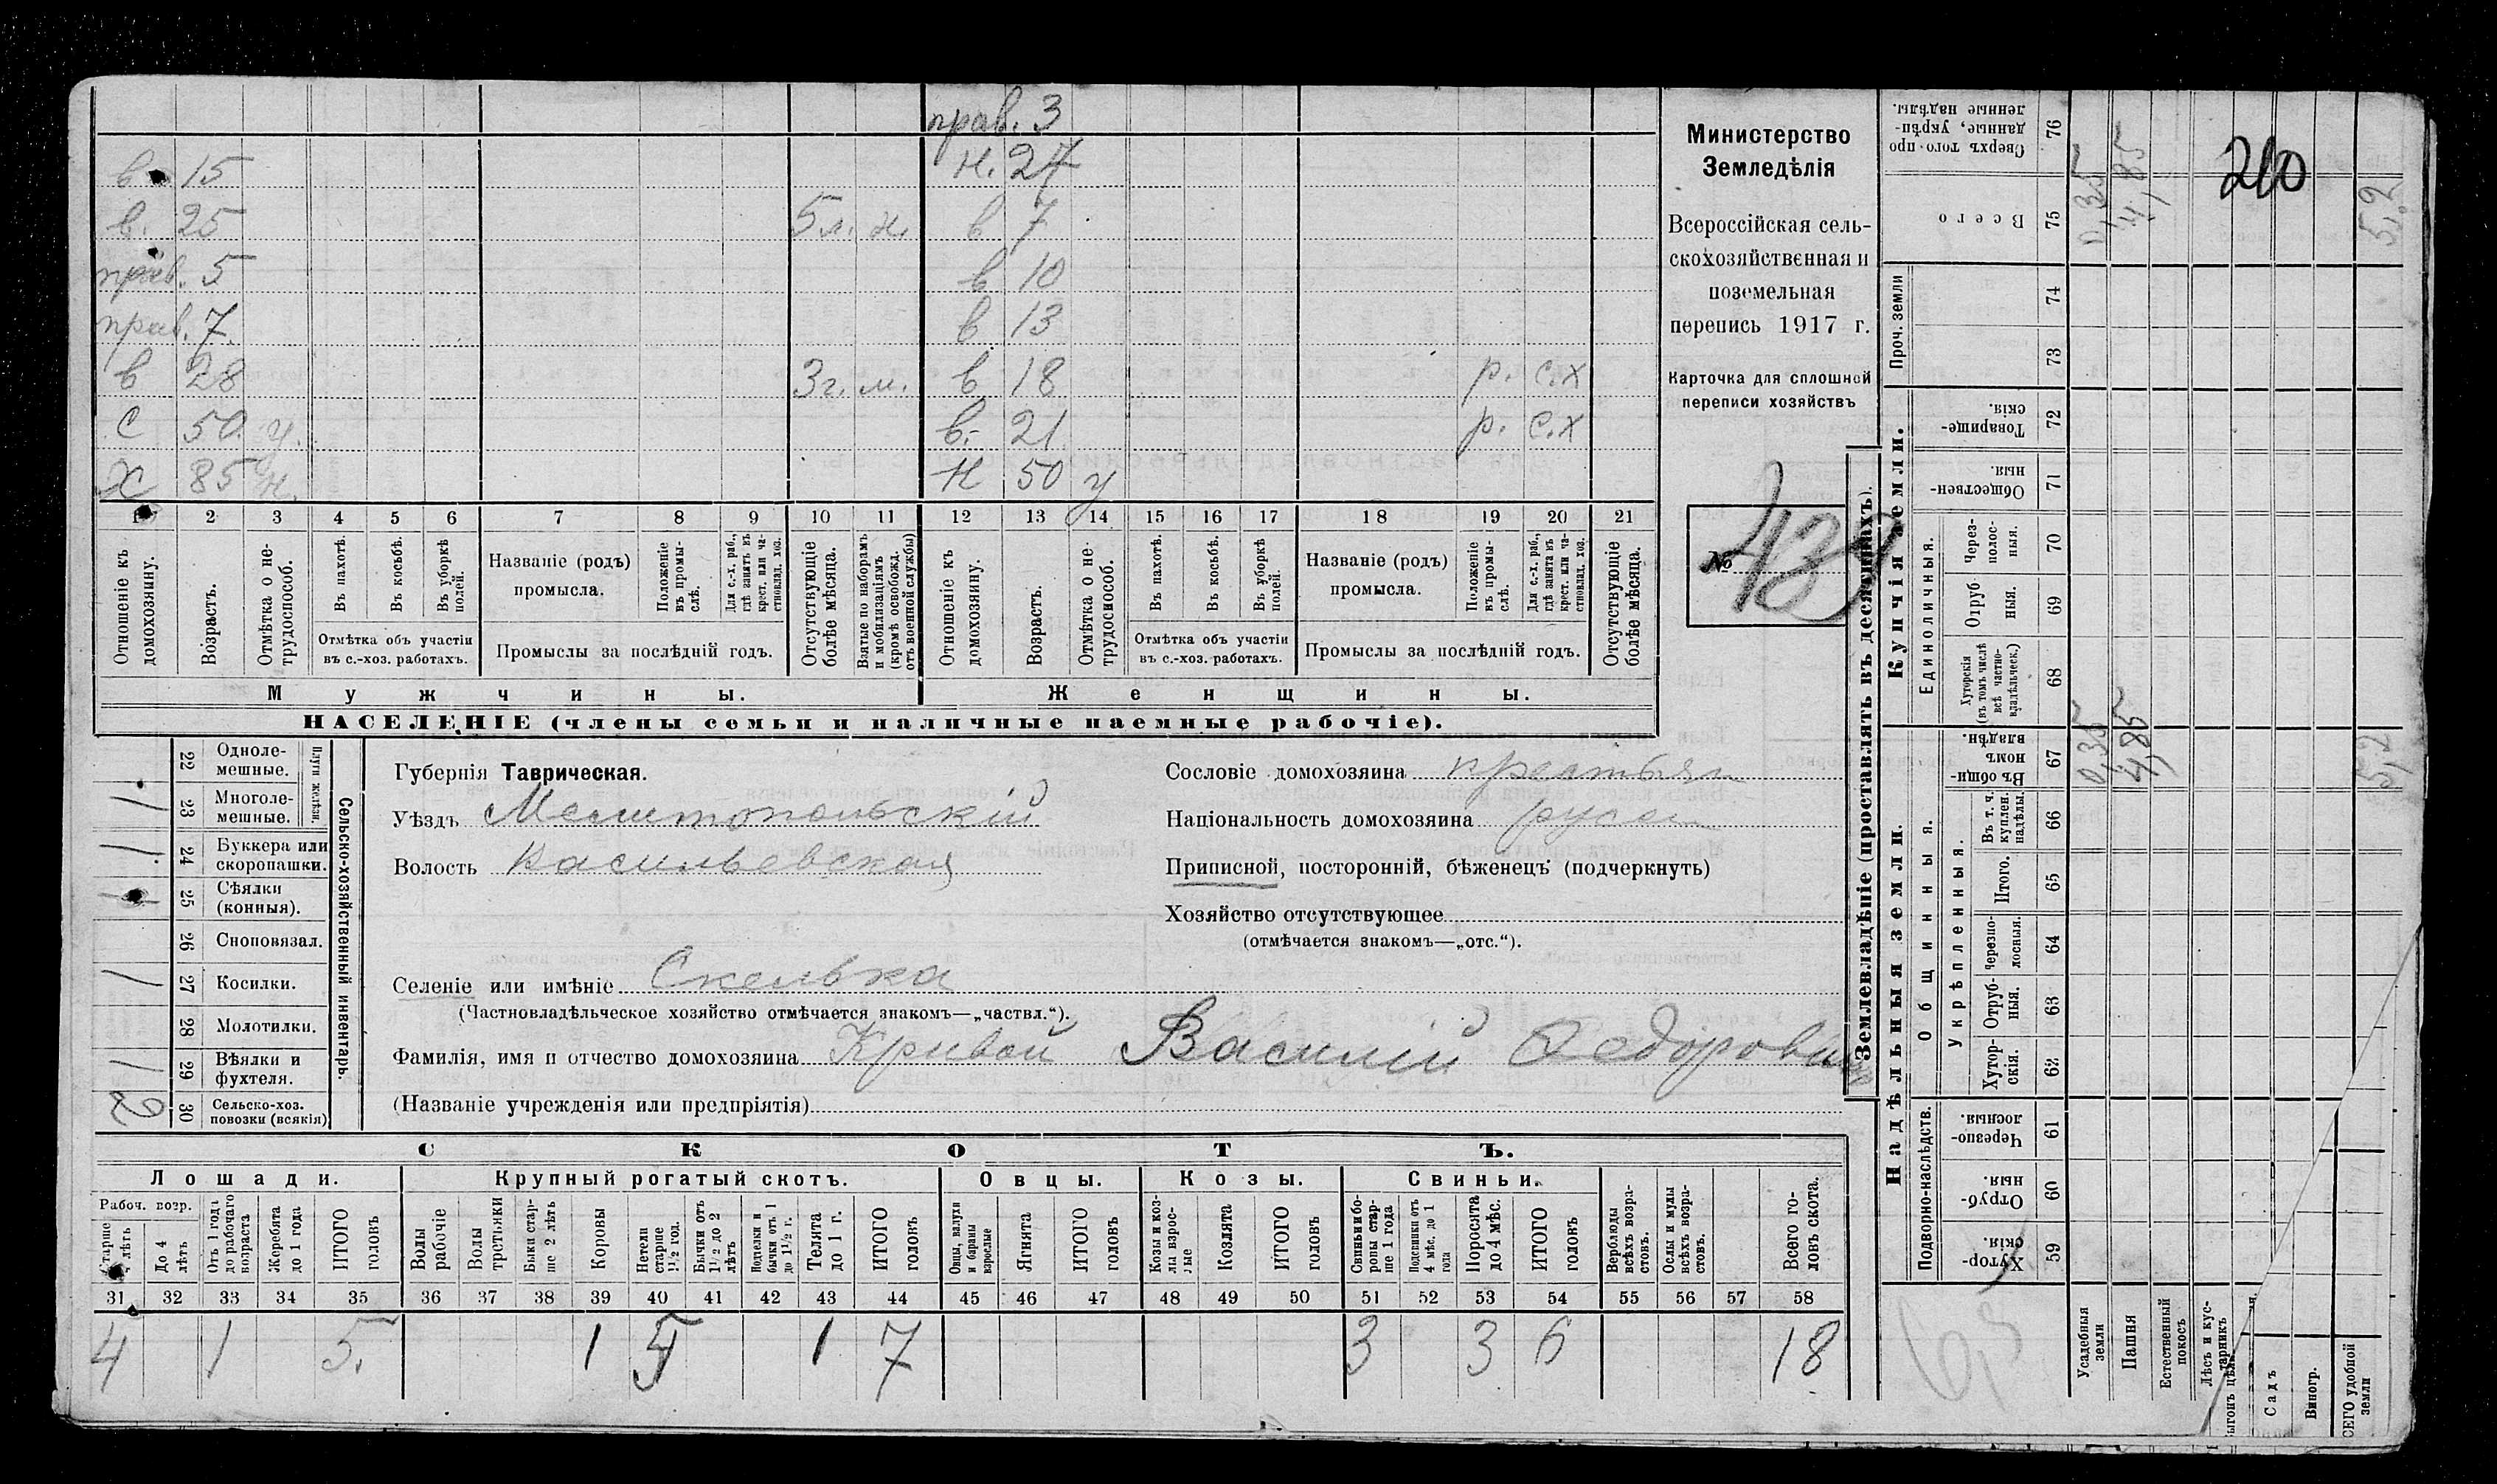 прав. 3
в. 15 н. 27
в. 25 5л. н. в 7
прав. 5 в 10
прав. 7 в 13
в 28 3г. м. в 18 р. с.х
с 50 у. в. 21 р. с.х
х 85 н. н 50 у
1 2 3 4 5 6 7 8 9 10 11 12 13 14 15 16 17 18 19 20 21
Отношеніе къ домохозяину.
Возрастъ.
Отмѣтка о не-трудоспособ.
Въ пахотѣ.
Въ косьбѣ.
Въ уборкѣ полей.
Отмѣтка объ участіи въ с.-хоз. работахъ.
Названіе (родъ) промысла.
Положеніе въ промы-слѣ.
Для с.-х. раб., гдѣ занятъ въ крест. или ча-стновлад. хоз.
Промыслы за послѣдній годъ.
Отсутствующіе болѣе мѣсяца.
Взятые по наборамъ и мобилизаціямъ (кромѣ освобожд. отъ военной службы)
Отношеніе къ домохозяину.
Возрастъ.
Отмѣтка о не-трудоспособ.
Въ пахотѣ.
Въ косьбѣ.
Въ уборкѣ полей.
Отмѣтка объ участіи въ с.-хоз. работахъ.
Названіе (родъ) промысла.
Положеніе въ промы-слѣ.
Для с.-х. раб., гдѣ занятъ въ крест. или ча-стновлад. хоз.
Промыслы за послѣдній годъ.
Отсутствующіе болѣе мѣсяца.
Мужчины. Женщины.
НАСЕЛЕНІЕ (члены семьи и наличные наемные рабочіе).
Министерство
Земледѣлія
Всероссійская сель-
скохозяйственная и
поземельная
перепись 1917 г.
Карточка для сплошной
переписи хозяйствъ
№
Сельско-хозяйственный инвентарь.
Плуги желѣзн.
22 Одноле-мешные.
23 Многоле-мешные. /
24 Буккера или скоропашки. /
25 Сѣялки (конныя).
26 Сноповязал.
27 Косилки. /
28 Молотилки.
29 Вѣялки и фухтеля. /
30 Сельско-хоз. повозки (всякія)
Губернія Таврическая.
Уѣздъ Мелитопольскій
Волость Васильевская
Селеніе или имѣніе Скелька
(Частновладѣльческое хозяйство отмѣчается знакомъ—„частвл.“).
Фамилія, имя и отчество домохозяина Кривой Василій Федорович
(Названіе учрежденія или предпріятія)
Сословіе домохозяина крестьян
Національность домохозяина русск
Приписной, посторонній, бѣженецъ (подчеркнуть)
Хозяйство отсутствующее
(отмѣчается знакомъ—„отс.“).
СКОТЪ.
Лошади. Крупный рогатый скотъ. Овцы. Козы. Свиньи.
Рабоч. возр.
Старше 4 лѣтъ
До 4 лѣтъ
Отъ 1 года до рабочаго возраста
Жеребята до 1 года
ИТОГО головъ
Волы рабочіе
Волы третьяки
Быки стар-ше 2 лѣтъ
Коровы
Нетели старше 1½ год.
Бычки отъ 1½ до 2 лѣтъ
Подтелки и бычки отъ 1 до 1½ г.
Телята до 1 г.
ИТОГО головъ
Овцы, валухи и бараны взрослые
Ягнята
ИТОГО головъ
Козы и коз-лы взрос-лые
Козлята
ИТОГО головъ
Свиньи и бо-ровы стар-ше 1 года
Подсвинки отъ 4 мѣс. до 1 года
Поросята до 4 мѣс.
ИТОГО головъ
Верблюды всѣхъ возра-стовъ.
Ослы и мулы всѣхъ возра-стовъ.
Всего го-ловъ скота.
31 32 33 34 35 36 37 38 39 40 41 42 43 44 45 46 47 48 49 50 51 52 53 54 55 56 57 58
4 1 5. 1 5 1 7 3 3 6 18
Землевладѣніе (проставлять въ десятинахъ).
Купчія земли.
Надѣльныя земли.
Сверхъ того про-данные, укрѣп-ленные надѣлы. 76
Всего 75 0,35 4,85 5,2
210
Проч. земли 74 73
Товарище-скія. 72
Обществен-ныя. 71
Единоличныя.
Через-полос-ныя. 70
Отруб-ныя. 69
Хуторскія (въ томъ числѣ всѣ частно-владѣльческ.) 68
Общинныя.
Въ общин-номъ владѣн. 67 0,35 4,85 5,2
Укрѣпленныя.
Въ т. ч. куплен. надѣлы. 66
Итого. 65
Черезпо-лосныя. 64
Отруб-ныя. 63
Хутор-скія. 62
Подворно-наслѣдств.
Черезпо-лосныя 61
Отруб-ныя 60
Хутор-скія. 59
Усадебныя земли
Пашня
Естественный покосъ
Лѣсъ и кус-тарникъ
Садъ
Виногр.
ВСЕГО удобной земли